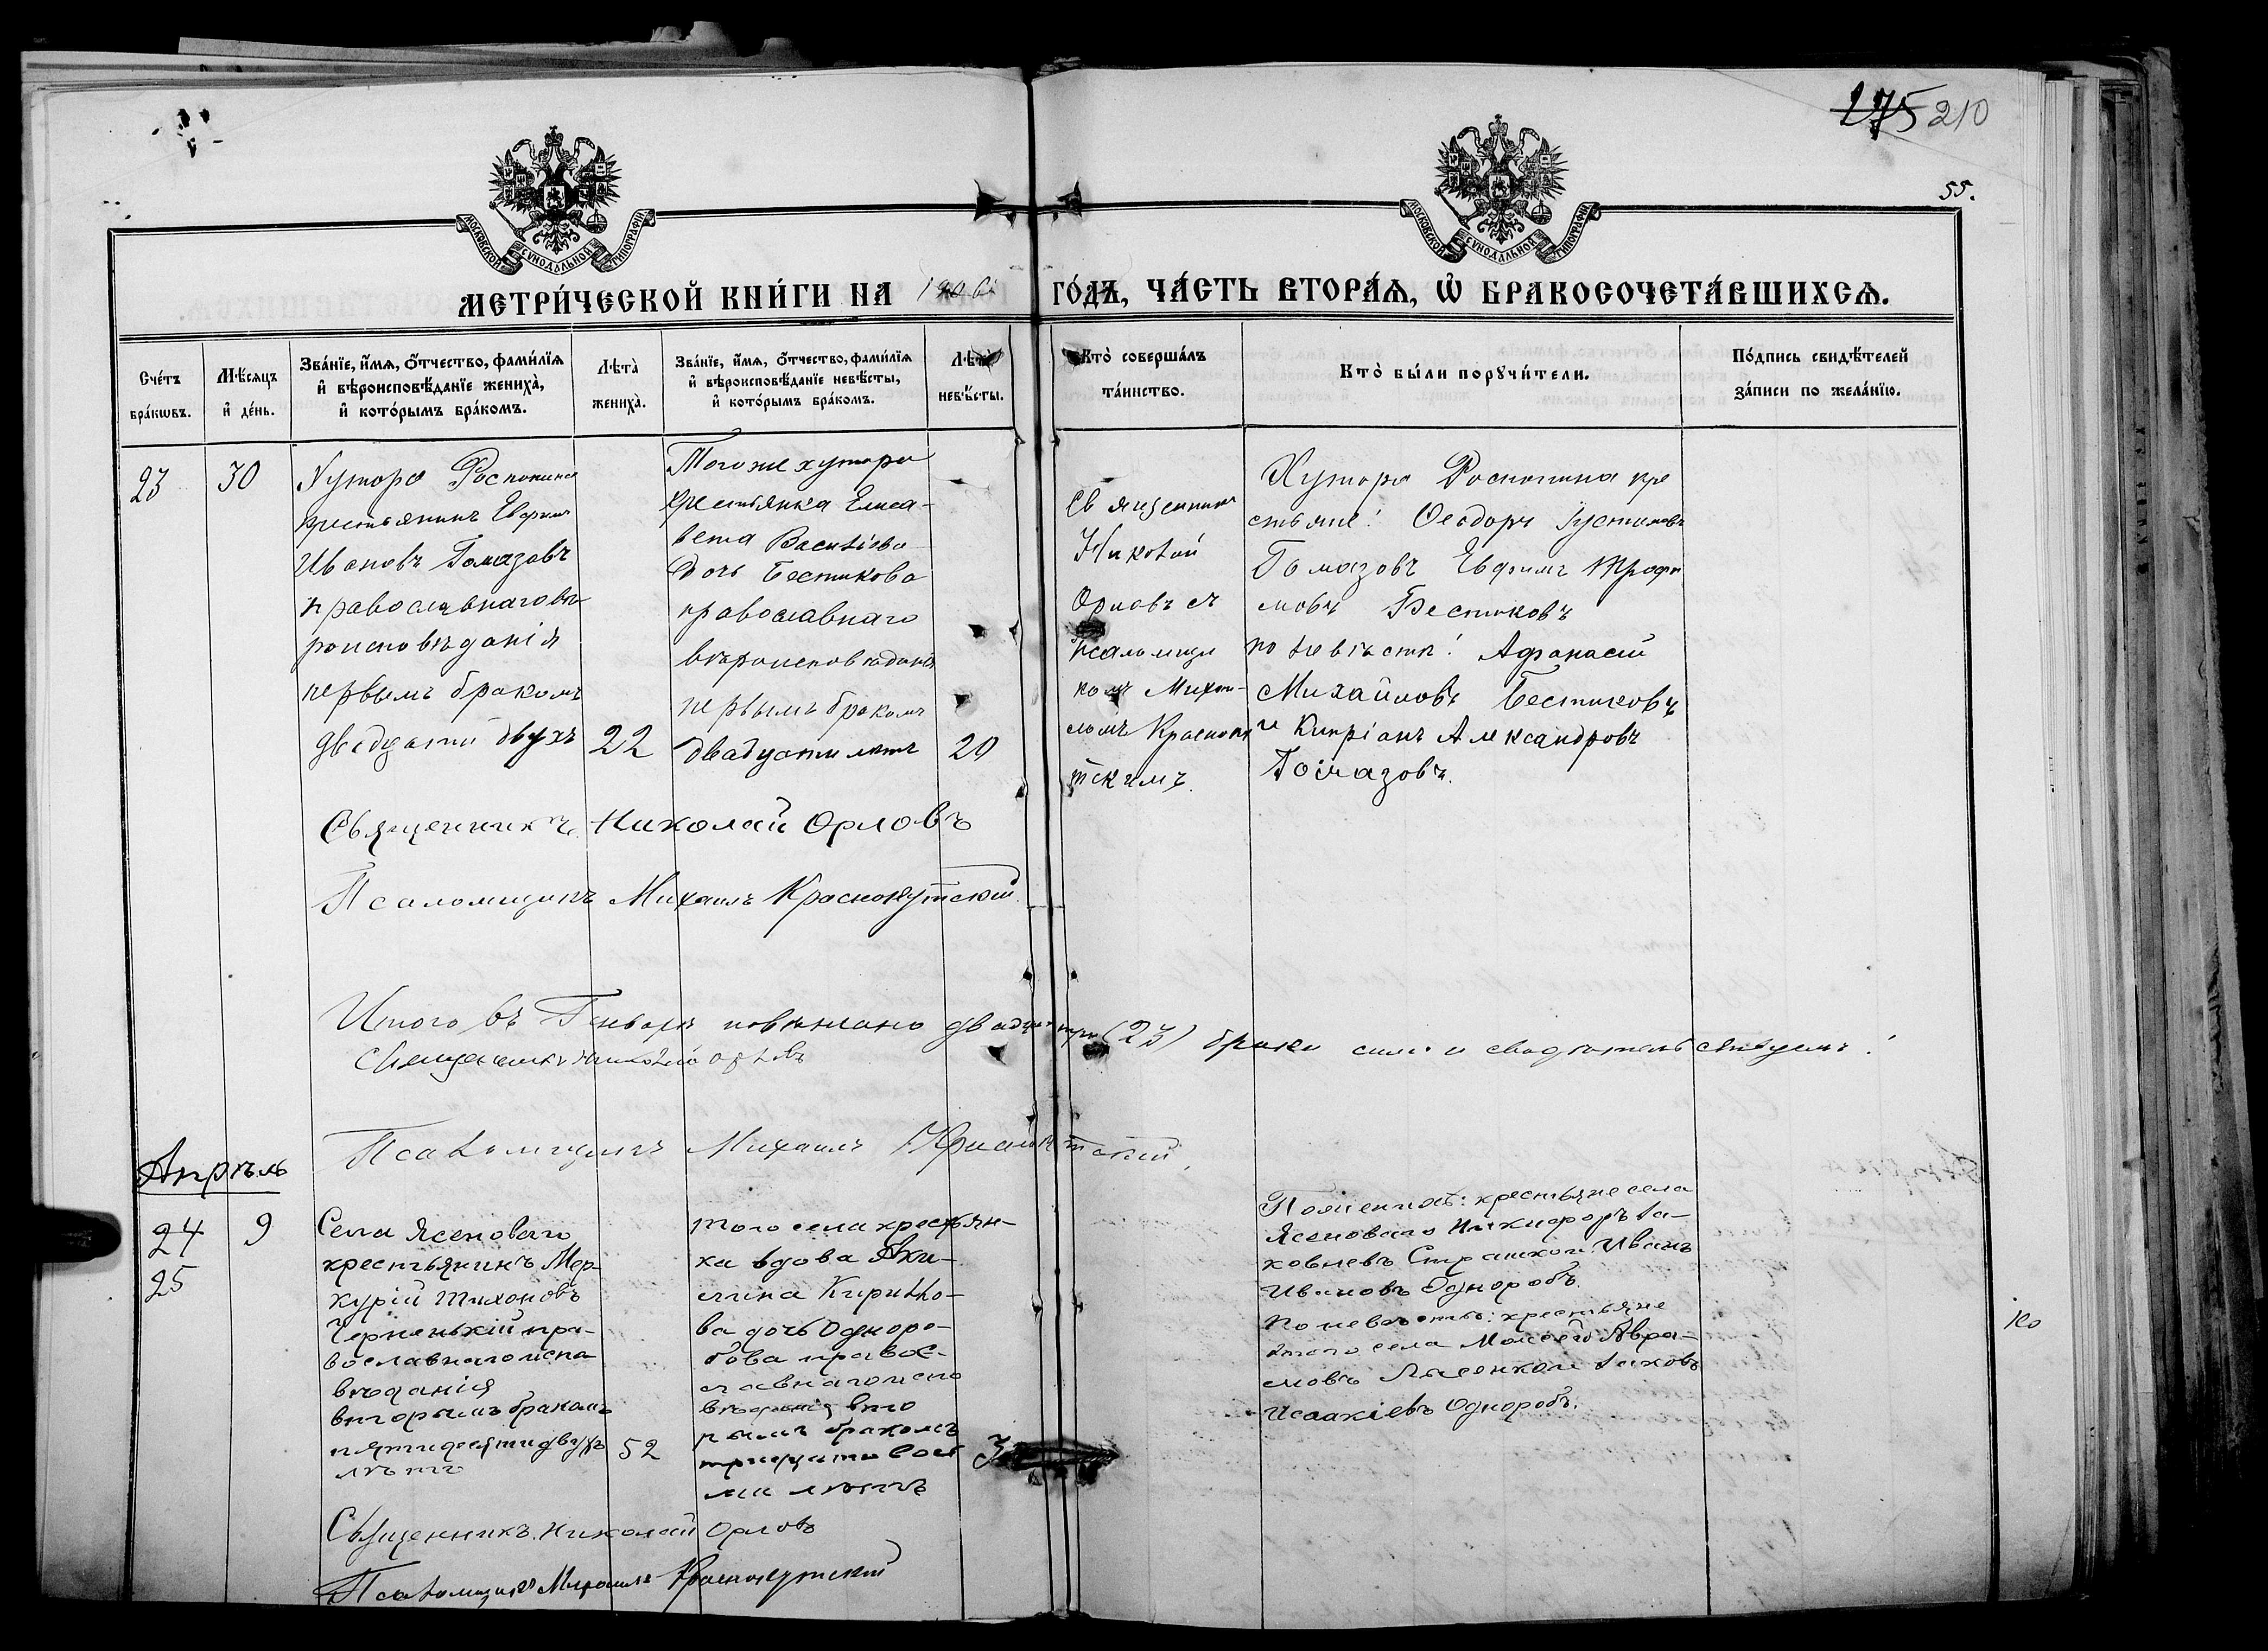 275 210
55.
МОСКОВСКОЙ СУНОДАЛЬНОЙ ТИПОГРАФІИ
МОСКОВСКОЙ СУНОДАЛЬНОЙ ТИПОГРАФІИ
МЕТРИ́ЧЕСКОЙ КНИ́ГИ НА
ГО́ДЪ, ЧА́СТЬ ВТОРА́Ѧ, Ѡ҆ БРАКОСОЧЕТА́ВШИХСѦ.
Сче́тъ бра́кѡвъ.
Мѣ́сѧцъ и҆ де́нь.
Зва́нїе, и҆́мѧ, ѻ҆́тчество, фами́лїѧ
и҆ вѣроисповѣ́данїе жениха̀,
и҆ кото́рымъ бра́комъ.
Лѣта̀ жениха̀.
Зва́нїе, и҆́мѧ, ѻ҆́тчество, фами́лїѧ
и҆ вѣроисповѣ́данїе невѣ́сты,
и҆ кото́рымъ бра́комъ.
Лѣта̀ невѣ́сты.
Кто̀ соверша́лъ
та́инство.
Кто̀ бы́ли порꙋчи́тели.
По́дпись свидѣ́телей
за́писи по жела́нїю.
23
30
Хутора Роспопина
крестьянинъ Евфимъ
Ивановъ Гомазовъ
православнаго вѣ-
роисповѣданія
первымъ бракомъ
двадцати двухъ
22
Того же хутора
крестьянка Елиса-
вета Васильева
дочь Бестикова
православнаго
вѣроисповѣданія
первымъ бракомъ
двадцати лѣтъ
20
Священникъ
Николай
Орловъ съ
псаломщи
комъ Михаи-
ломъ Краснокут
тскимъ.
Хутора Роспопина кре
стьяне: Ѳеодоръ Іустиновъ
Гомазовъ Евфимъ Трофи
мовъ Бестиковъ
по невѣстѣ: Афанасій
Михайловъ Бестиковъ
и Кипріанъ Александровъ
Гомазовъ.
Священникъ Николай Орловъ
Псаломщикъ Михаилъ Краснокутскій
Итого въ Генварѣ повѣнчано двадцать три (23) брака сим и свидѣтельствуемъ!
Священникъ Николай Орловъ
Псаломщикъ Михаилъ Краснокутскій.
Апрѣль
24
25
9
Села Ясеноваго
крестьянинъ Мер-
курій Тихоновъ
Черненькій пра-
вославнаго испо
вѣданія
вторымъ бракомъ
пятидесяти двухъ
лѣтъ
52
того села крестьян-
ка вдова Аки-
лина Кирилло-
ва дочь Одноро-
бова правос-
лавнаго испо
вѣданія вто
рымъ бракомъ
тридцати вось
ми лѣтъ
По женихѣ: крестьяне села
Ясеноваго Никифоръ Іа-
ковлевъ Страшкои Иванъ
Ивановъ Одноробъ.
По невѣстѣ: крестьяне
того села Моисей Авра-
мовъ Лысенкои Іаковъ
Исаакіевъ Одноробъ.
Священникъ Николай Орловъ
Псаломщикъ Михаилъ Краснокутскій